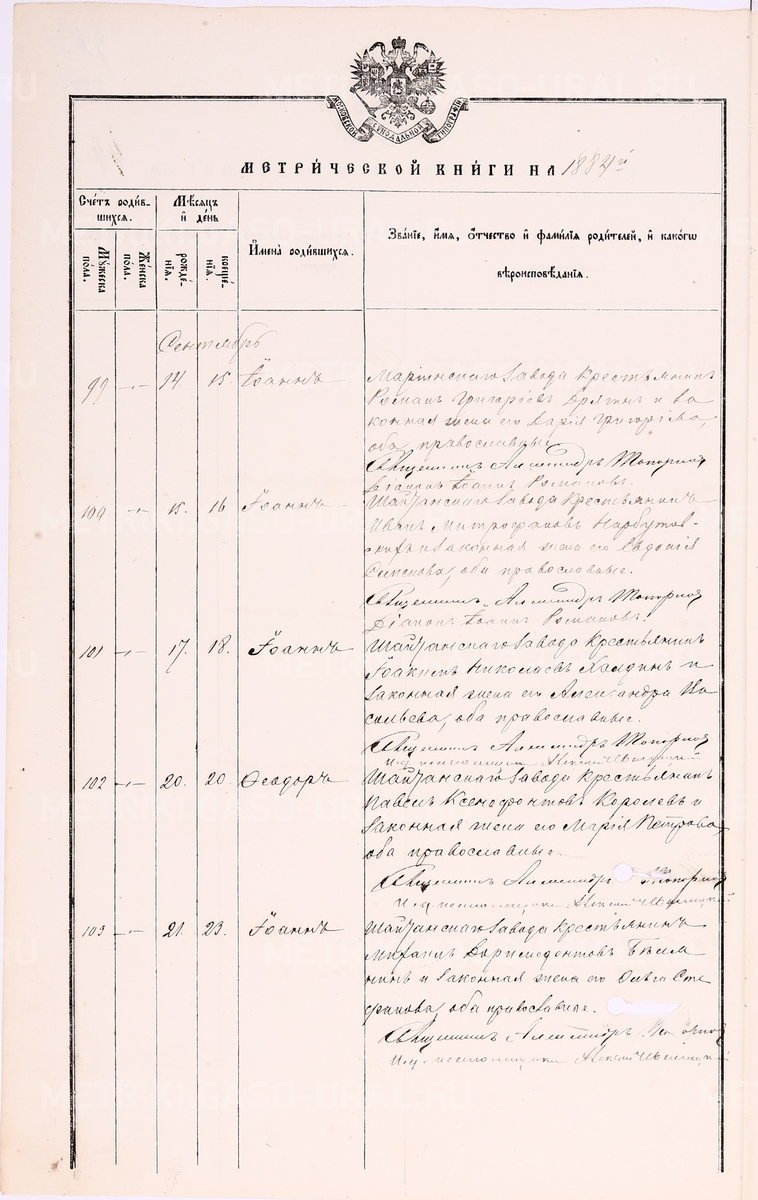 МОСКОВСКОЙ СѴНОДАЛЬНОЙ ТИПОГРАФІИ
МЕТРИ́ЧЕСКОЙ КНИ́ГИ НА 1884й
Сче́тъ роди́в-
шихся.
Мѣ́сяцъ
и҆ де́нь
Мꙋ́жеска
по́ла.
Же́нска
по́ла.
рожде́-
нїѧ.
креще́-
нїѧ.
И҆мена̀ роди́вшихся.
Зва́нїе, и҆́мя, ѻ҆́тчество и҆ фами́лїя роди́телей, и҆ како́гѡ
вѣроисповѣ́данїя.
Сентябрь
99 -"- 14. 15. Іоаннъ
Маріинскаго завода крестьянинъ
Романъ Григоріевъ и за
конная жена его Дарія Григорьева,
оба православные
Священникъ Александръ Топорковъ
Діаконъ Іоаннъ Романовъ.
100 -"- 15. 16 Іоаннъ
Шайтанскаго завода крестьянинъ
Иванъ Митрофановъ Нарбутов-
скихъ и законная жена его Евдокія
Семенова, оба православные.
Священникъ Александръ Топорковъ
Діаконъ Іоаннъ Романовъ.
101 -"- 17. 18. Іоаннъ
Шайтанскаго завода крестьянинъ
Іоакимъ Николаевъ Халдинъ и
законная жена его Александра Ва
сильева, оба православные.
Священникъ Александръ Топорковъ
И. д. псаломщика Алексѣй
102 -"- 20. 20. Ѳеодоръ
Шайтанскаго завода крестьянинъ
Павелъ Ксенофонтовъ Королевъ и
законная жена его Марія Петрова,
оба православные.
Священникъ Александръ Топорковъ
И. д. псаломщика Алексѣй
103 -"- 21. 23. Іоаннъ
Шайтанскаго завода крестьянинъ
Михаилъ Доримедонтовъ Бѣлы
нинъ и законная жена его Ольга Сте
фанова, оба православные.
Священникъ Александръ
И. д. псаломщика Алексѣй
METRIKI.GASO-URAL.RU